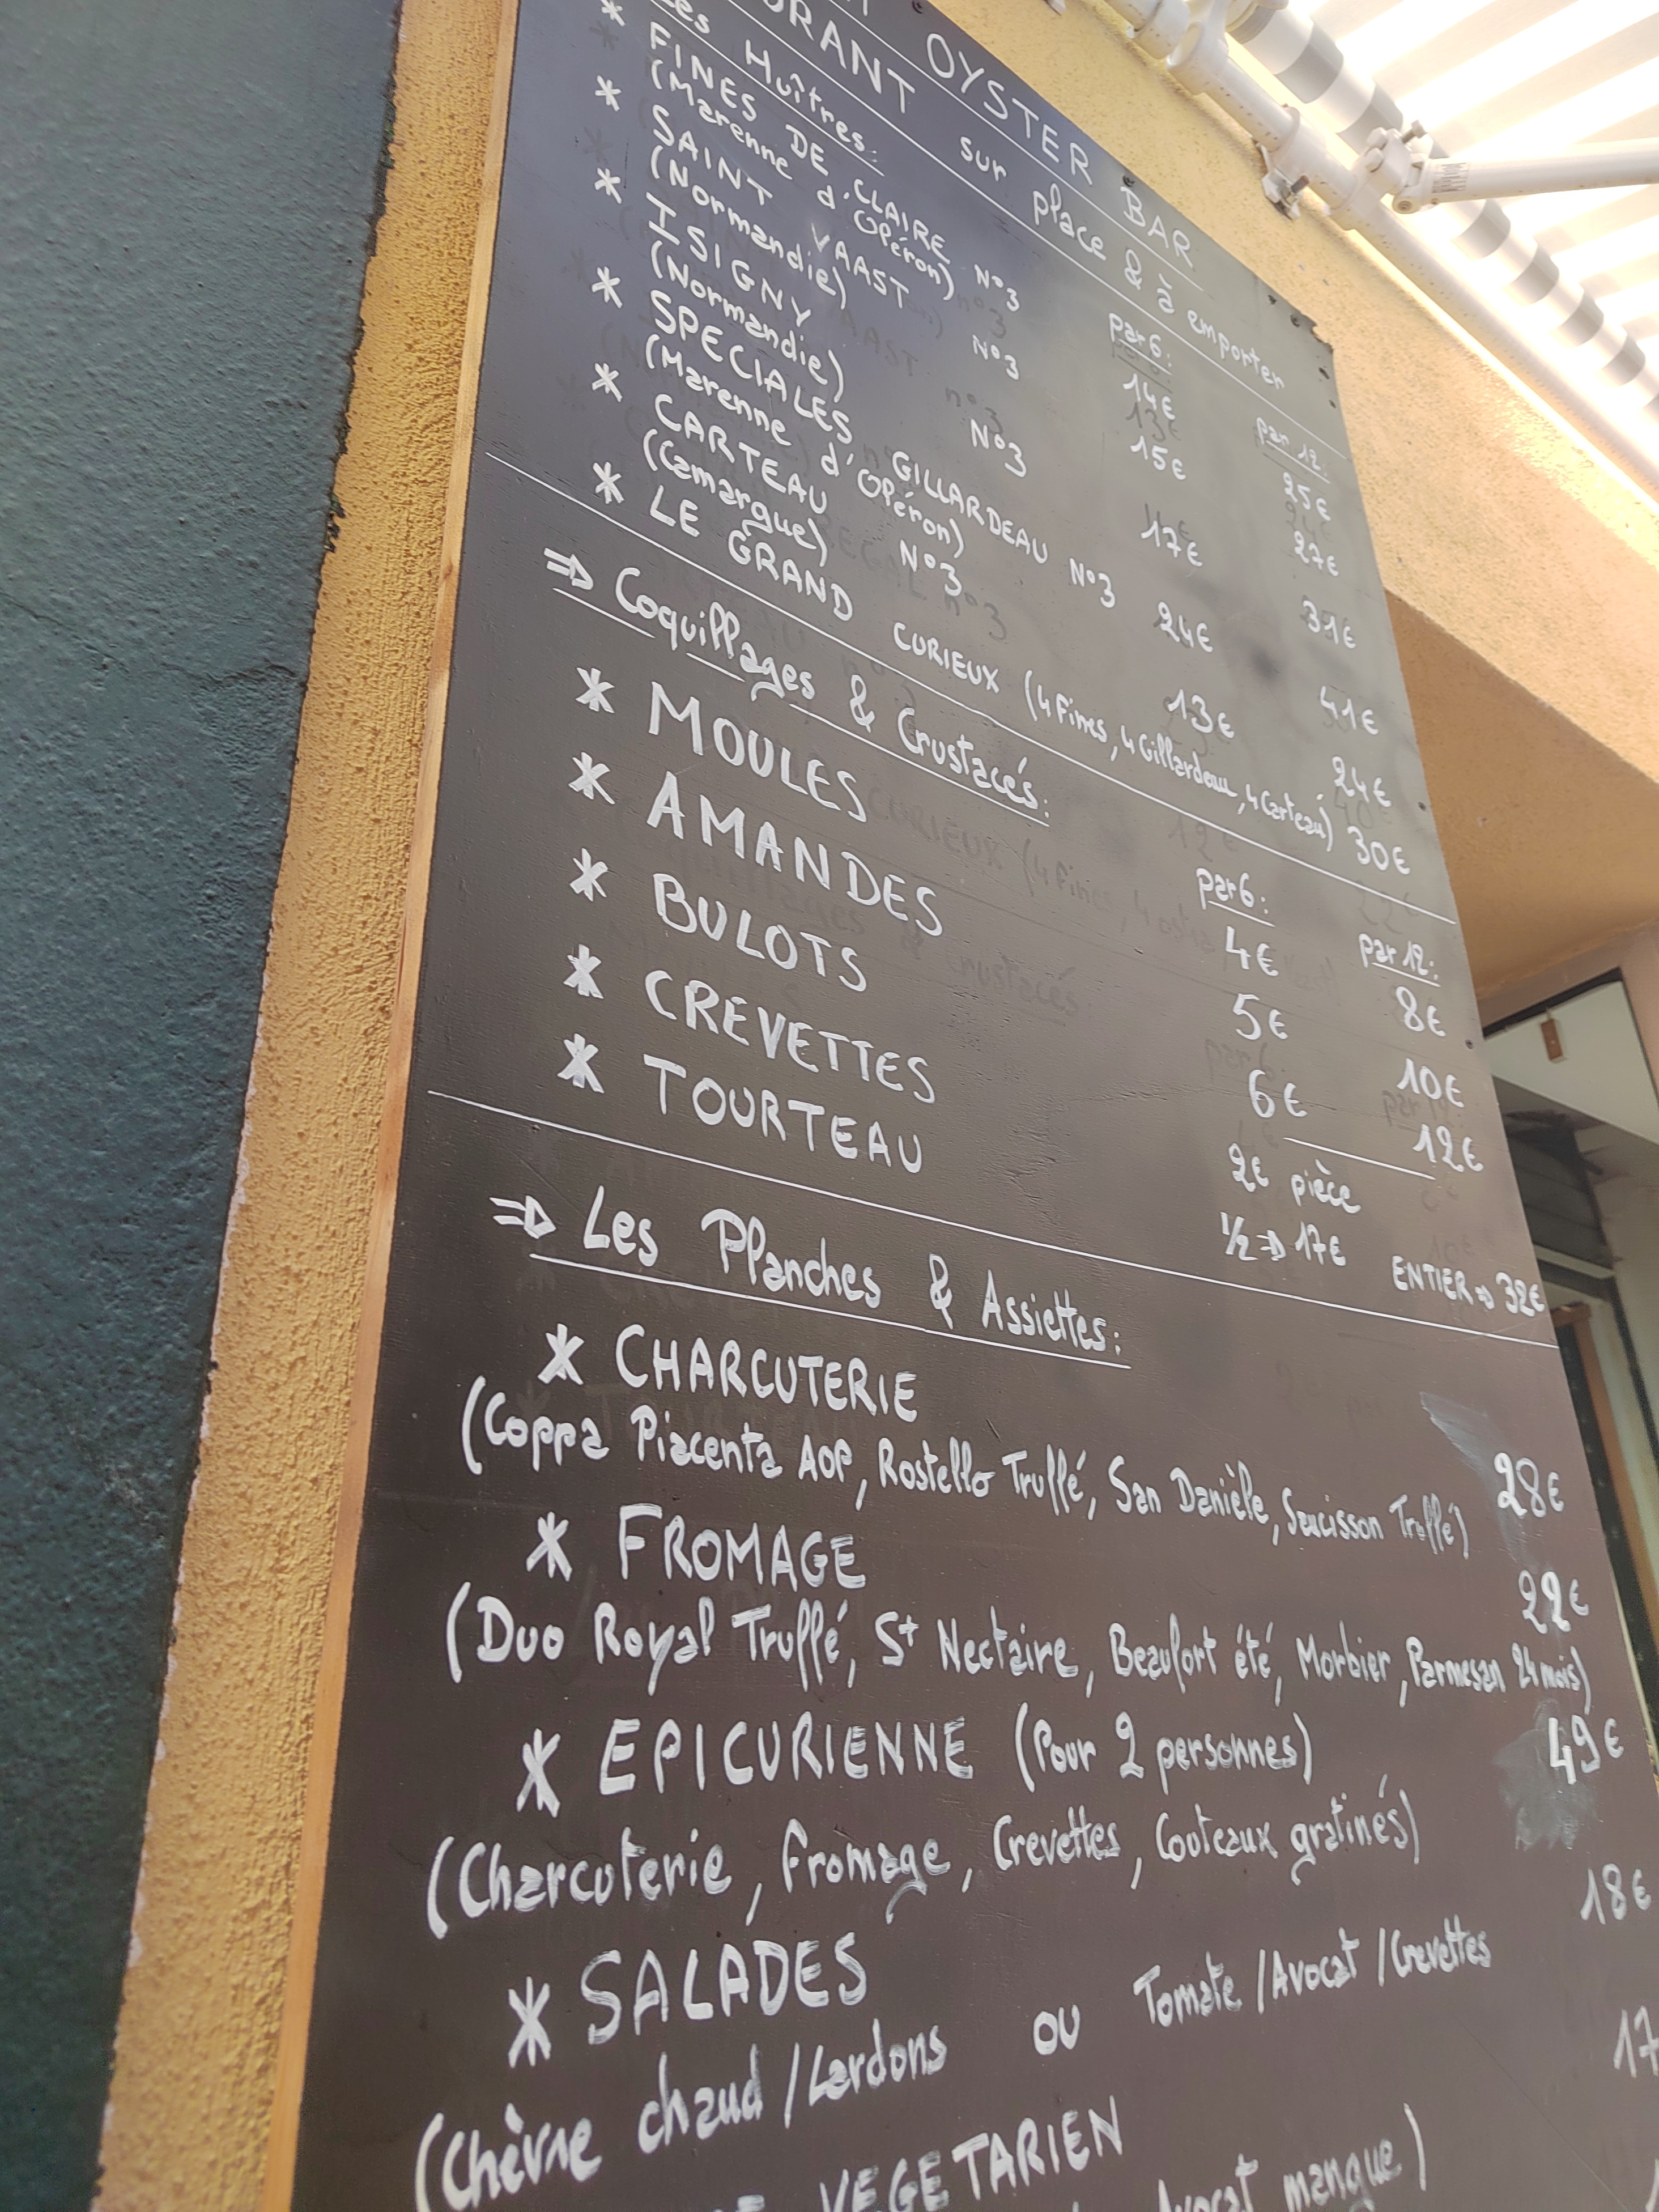 OYSTER BAR
sur place & à emporter
Les Huîtres: par 6: par 12:
* FINES DE CLAIRE N°3 14€ 25€
(Marenne d'Oléron)
* SAINT VAAST N°3 15€ 27€
(Normandie)
* ISIGNY N°3 17€ 31€
(Normandie)
* SPECIALES GILLARDEAU N°3 24€ 41€
(Marenne d'Oléron)
* CARTEAU N°3 13€ 24€
(Camargue)
* LE GRAND CURIEUX (4 Fines, 4 Gillardeau, 4 Carteau) 30€
⇒ Coquillages & Crustacés: par 6: par 12:
* MOULES 4€ 8€
* AMANDES 5€ 10€
* BULOTS 6€ 12€
* CREVETTES 2€ pièce
* TOURTEAU 1/2 ⇒ 17€ ENTIER ⇒ 32€
⇒ Les Planches & Assiettes:
* CHARCUTERIE 28€
(Coppa Piacenta AOP, Rostello Truffé, San Danièle, Saucisson Truffé)
* FROMAGE 22€
(Duo Royal Truffé, St Nectaire, Beaufort été, Morbier, Parmesan 24 mois)
* EPICURIENNE (Pour 2 personnes) 49€
(Charcuterie, fromage, Crevettes, Couteaux gratinés)
* SALADES 18€
(Chèvre chaud / Lardons OU Tomate / Avocat / Crevettes
VEGETARIEN 17
Avocat mangue)